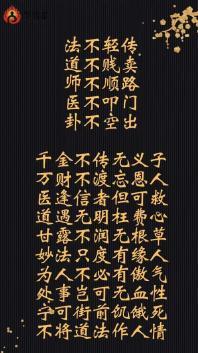 法不轻传
道不贱卖
师不顺路
医不叩门
卦不空出
千金不传无义子
万财不渡忘恩人
医逢信者但可救
道遇无明枉费心
甘露不润无根草
妙法只度有缘人
为人不可有傲气
处事岂可无血性
宁可街前饥饿死
不将道法作人情